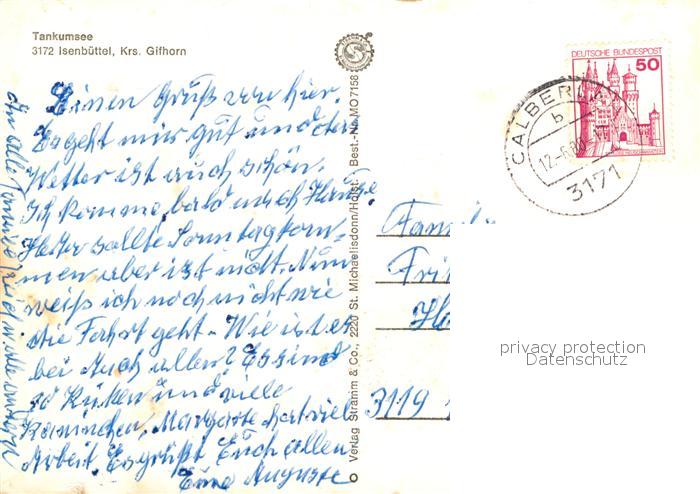 Tankumsee
3172 Isenbüttel, Krs. Gifhorn
Einen Gruß von hier.
Es geht mir gut und das
Wetter ist auch schön.
Ich komme bald nach Hause
sollte Sonntag kom-
men aber ist nicht. Nun
weiß ich noch nicht wie
die Fahrt geht. Wie ist es
bei Auch allen? Es sind
30 Küken und viele
Kaninchen, Margarete hat viel
Arbeit. Es grüßt Euch allen
Auguste
an alle
Verlag Stramm & Co., 2220 St. Michaelisdonn/Holst. Best.-Nr. MO 7158
DEUTSCHE BUNDESPOST
50
CALBERL
b
12.-6.80
3171
Fami
Fri
Ha
3119
privacy protection
Datenschutz